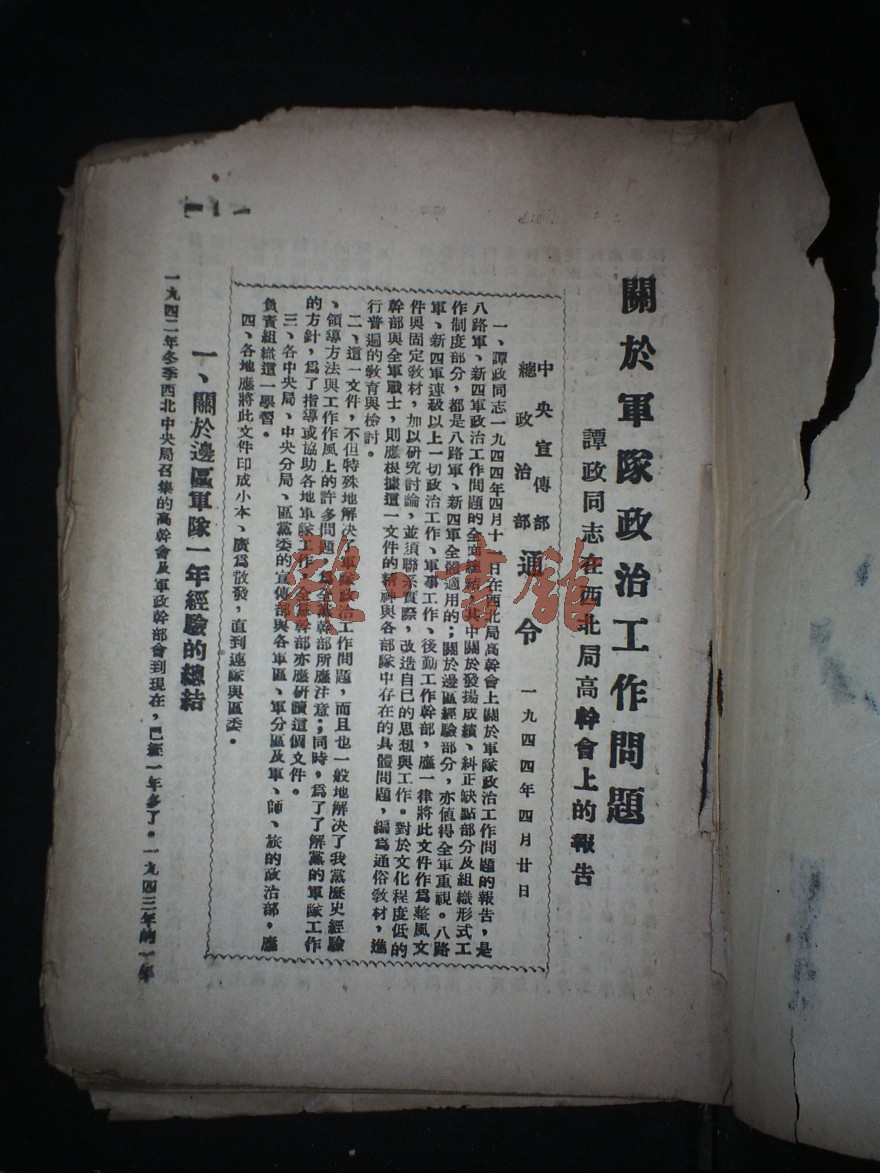 關於軍隊政治工作問題
譚政同志在西北局高幹會上的報告
中央宣傳部
總政治部
通令
一九四四年四月廿日
一、譚政同志一九四四年四月十一日在西北局高幹會上關於軍隊政治工作問題的報告，是
八路軍、新四軍政治工作問題的全面總結，其中關於發揚成績、糾正缺點部分及組織形式工
作制度部分，都是八路軍、新四軍全體適用的；關於邊區經驗部分，亦値得全軍重視。八路
軍、新四軍連級以上一切政治工作、軍事工作、後勤工作幹部，應一律將此文件作爲整風文
件與固定敎材，加以研究討論，並須聯系實際，改造自己的思想與工作。對於文化程度低的
幹部與全軍戰士，則應根據這一文件的精神與各部隊中存在的具體問題，編爲通俗敎材，進
行普遍的敎育與檢討。
二、這一文件，不但特殊地解决了軍隊政治工作問題，而且也一般地解决了我黨歷史經驗
、領導方法與工作作風上的許多問題，爲全黨幹部所應注意；同時，爲了了解黨的軍隊工作
的方針，爲了指導或協助各地軍隊工作，全黨幹部亦應研讀這個文件。
三、各中央局、中央分局、區黨委的宣傳部與各軍區、軍分區及軍、師、旅的政治部，應
負責組織這一學習。
四、各地應將此文件印成小本、廣爲散發，直到連隊與區委。
一、關於邊區軍隊一年經驗的總結
一九四二年冬季西北中央局召集的高幹會及軍政幹部會到現在，已經一年多了。一九四三年的一年
— 1 —
雜·書館